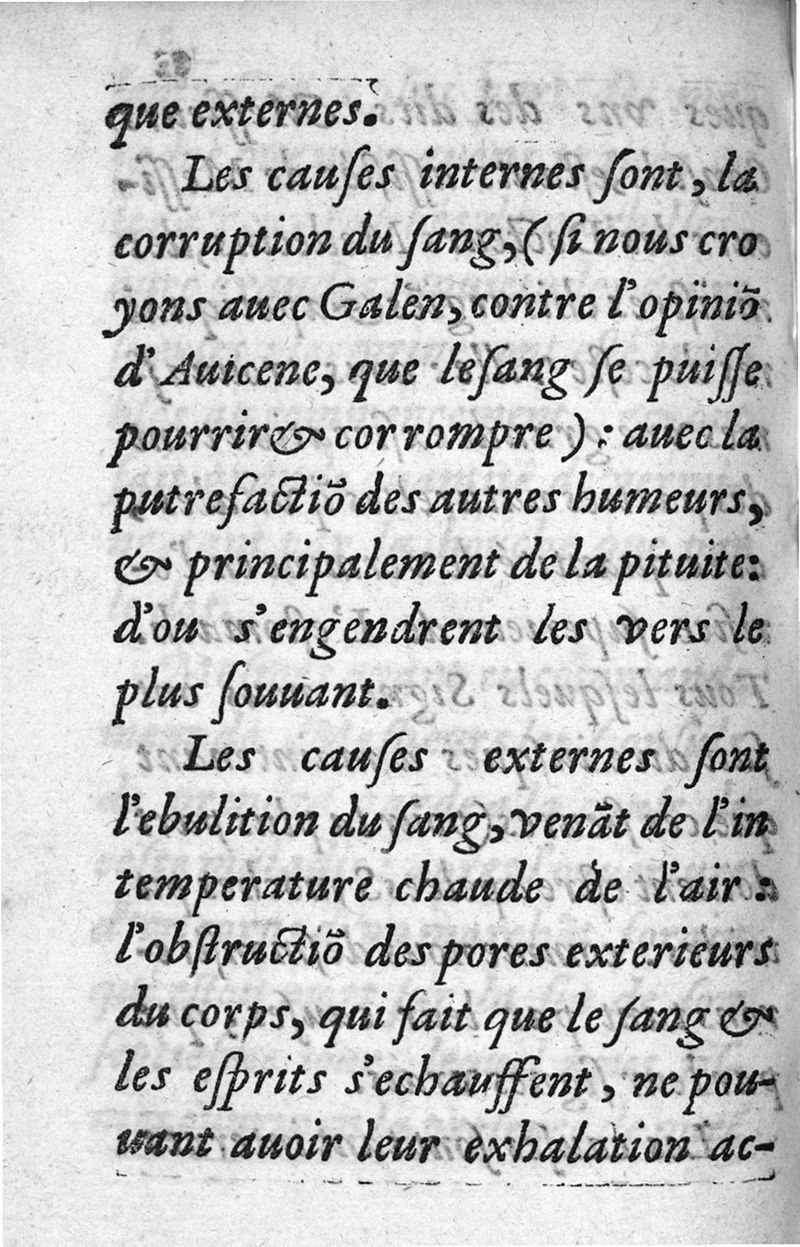 que externes.
Les cauſes internes ſont, la
corruption du ſang, (ſi nous cro
yons auec Galen, contre l'opiniõ
d'Auicene, que le ſang ſe puiſſe
pourrir & corrompre): auec la
putrefactiõ des autres humeurs,
& principalement de la pituite:
d'ou s'engendrent les vers le
plus ſouuant.
Les cauſes externes ſont
l'ebulition du ſang, venãt de l'in
temperature chaude de l'air:
l'obſtructiõ des pores exterieurs
du corps, qui fait que le ſang &
les eſprits s'echauffent, ne pou-
uant auoir leur exhalation ac-